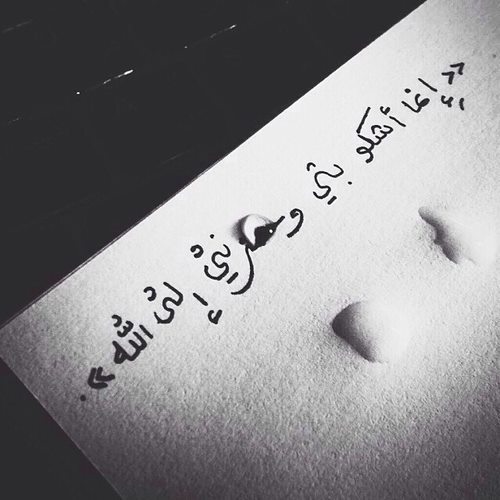 «إنما أشكو بثي وحزني إلى الله».